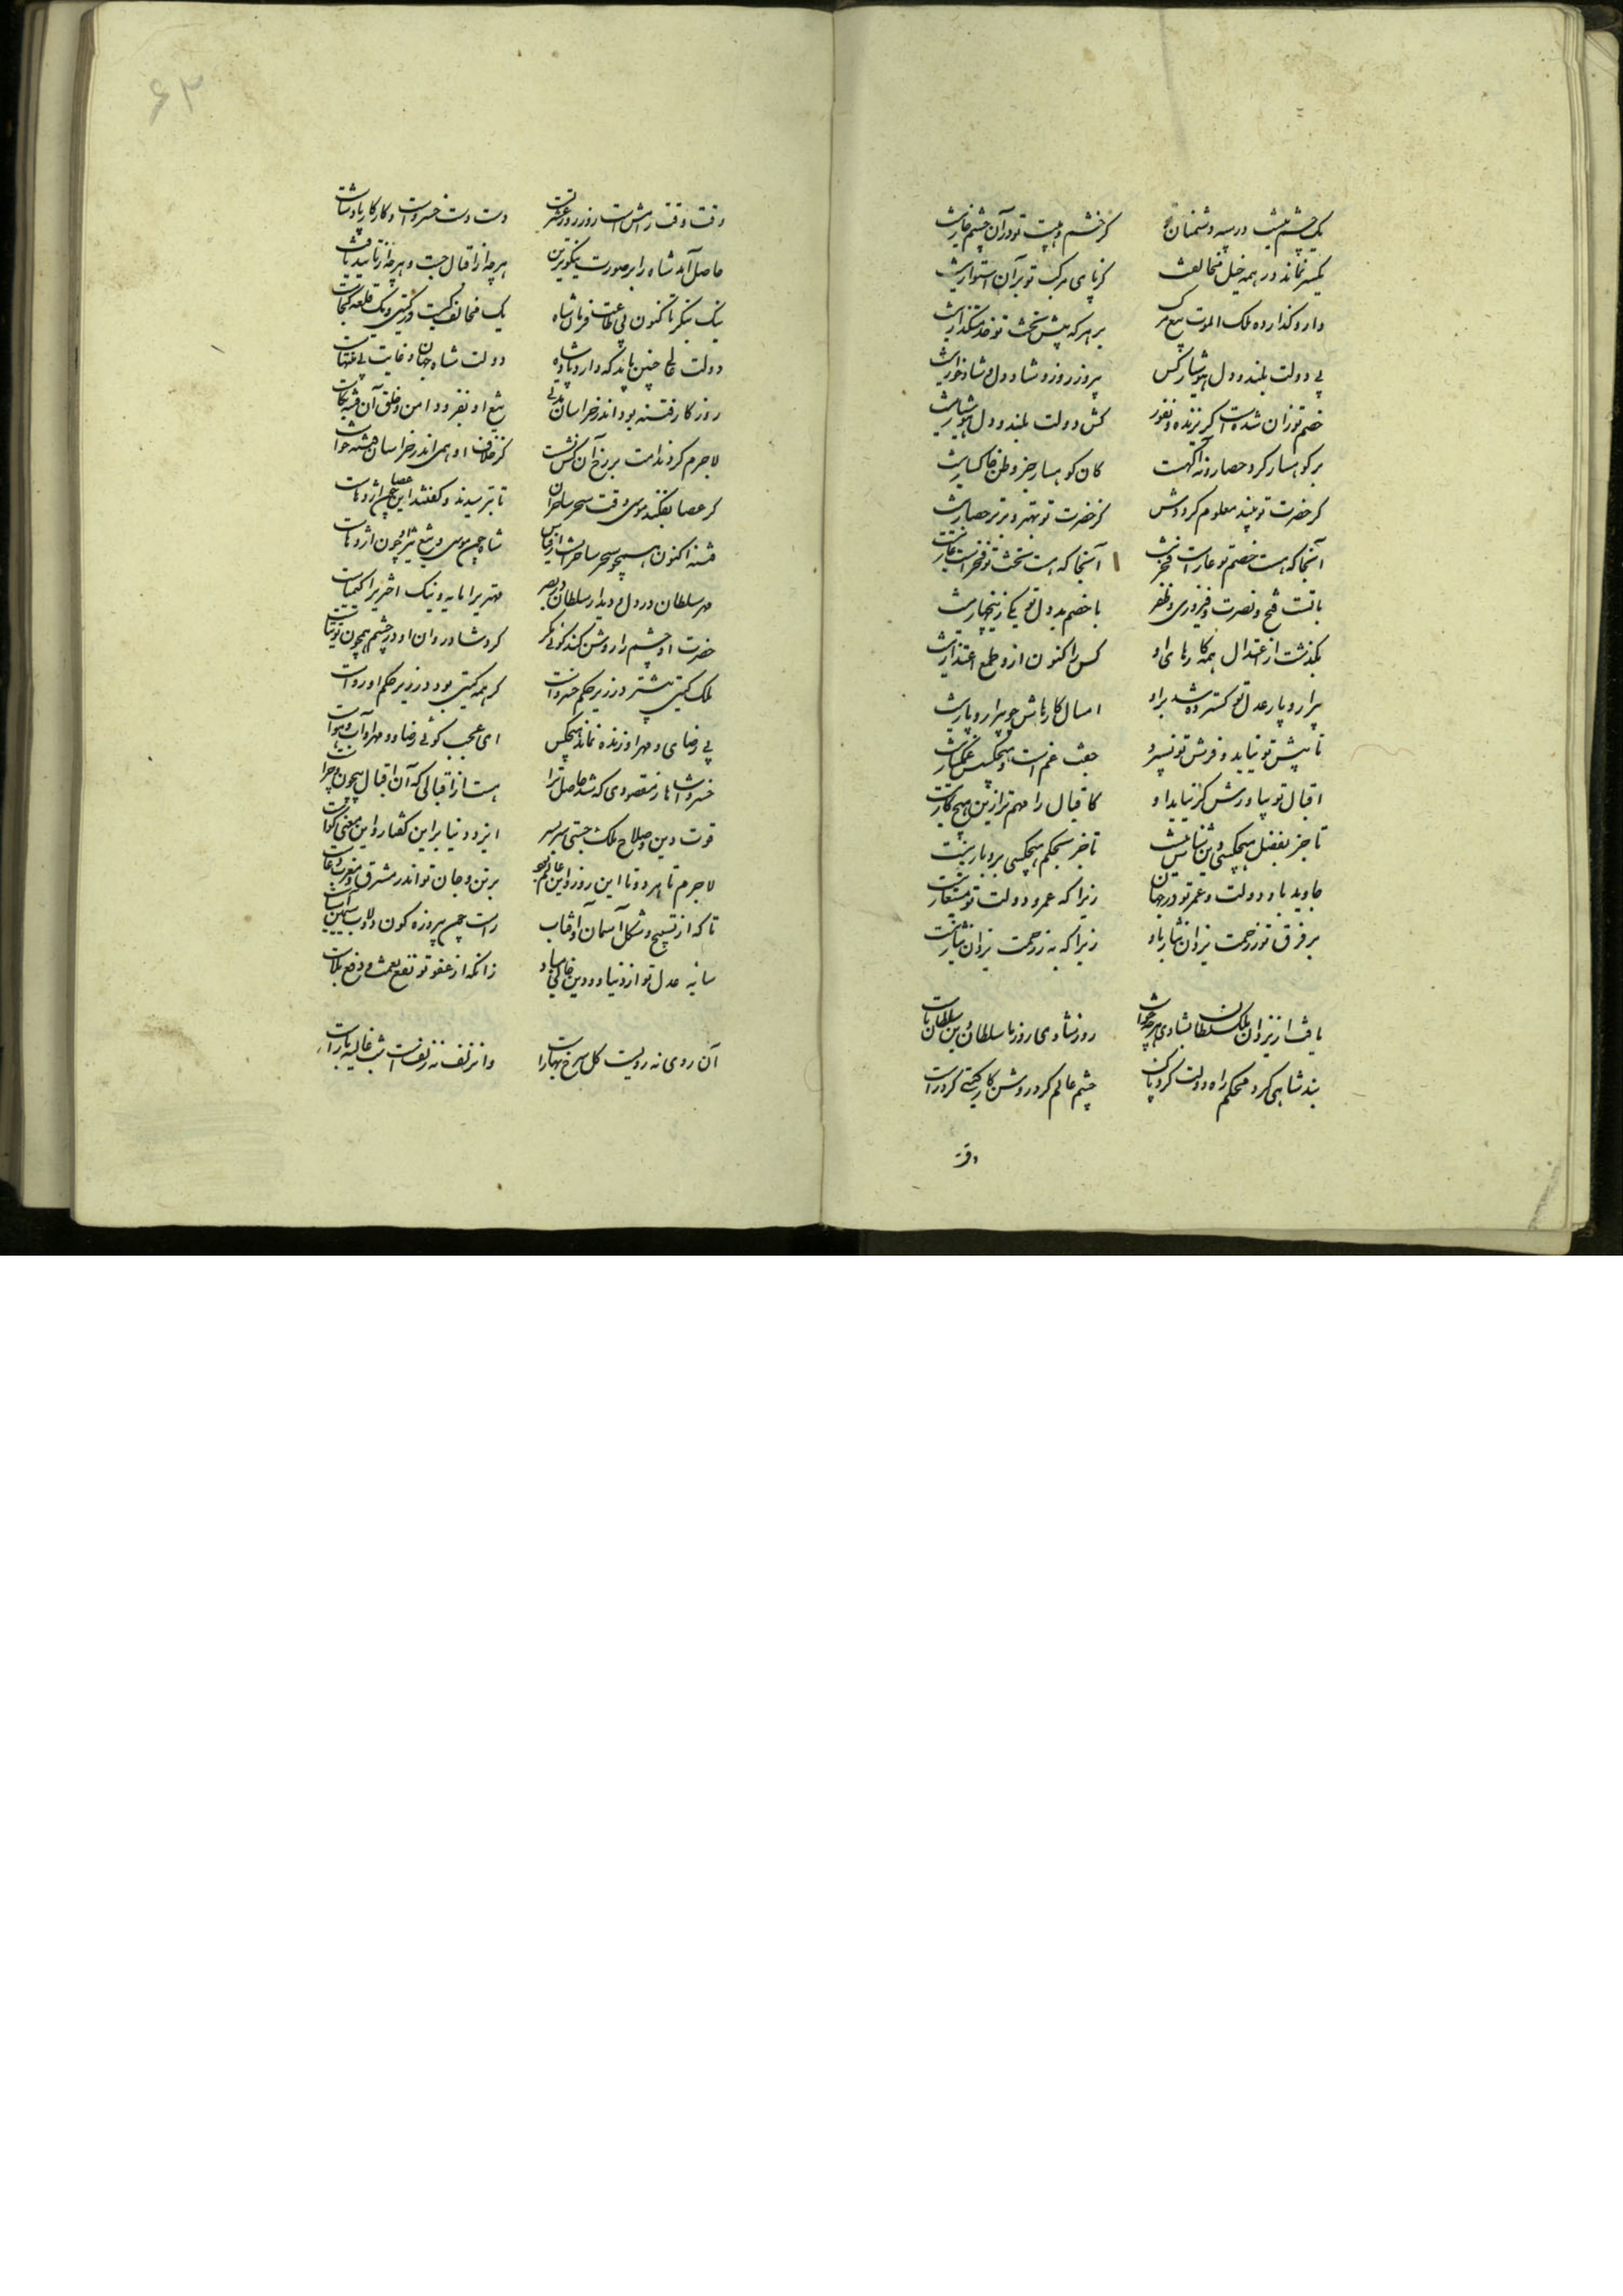 یک چشم نیست در سپه دشمنان تو کز خشم و هیبت تو در آن چشم خار نیست
یکسر نماند در همه خیل مخالفت کز پای مرکب تو بر آن استوار نیست
دارو گذارده ملک الموت تیغ مرگ بر هر که پیش تخت تو خدمتگذار نیست
بی دولت بلند و دل هوشیار کس پیروز روز و شاد دل و شادخوار نیست
خصم تو زان شدست گریزنده و نفور کش دولت بلند و دل هوشیار نیست
بر کوهسار کرد حصار و نه آگهست کان کوهسار جز وطن خاکسار نیست
گر حضرت تو بیند معلوم گرددش کز حضرت تو بهتر و برتر حصار نیست
آنجا که هست خصم تو عارست و فخر نیست آنجا که هست تخت تو فخرست عار نیست
با تست فتح و نصرت و فیروزی و ظفر با خصم بد دل تو یکی زین چهار نیست
بگذشت از اعتدال همه کارهای او کس را کنون ازو طمع اعتذار نیست
پیرار و پار عدل تو گسترده شد برو امسال کارهاش چو پیرار و پار نیست
تا پیش تو نیاید و فرش تو نسپرد جفت غم است و هیچکسش غمگسار نیست
اقبال تو بیاوردش گر نیاید او کاقبال را مهم‌تر ازین هیچ کار نیست
تا جز بفضل هیچکسی را ستایش نیست تا جز بحکم هیچکسی بردبار نیست
جاوید باد دولت و عمر تو در جهان زیرا که عمر و دولت تو مستعار نیست
بر فرق تو ز رحمت یزدان نثار باد زیرا که به ز رحمت یزدان نثار نیست
یافت از یزدان ملک سلطان بشادی هر چه خواست روز شادی روز ما سلطان دین سلطان ماست
بند شاهی کرد محکم راه دولت کرد پاک چشم عالم کرد روشن کار گیتی کرد راست
وقت
۶۲
وقت وقت رامش است و روز روز عشرتست دست دست خسروست و کار کار پادشاست
حاصل آمد شاه را بر صورت نیکوترین هر چه از اقبال جست و هر چه از تایید خواست
نیک بنگر تا کنون بی طاعت فرمان شاه یک مخالف کیست در گیتی و یک قلعه کجاست
دولت عالی چنین باید که دارد پادشاه دولت شاه جهان و غایت بی منتهاست
روزگار فتنه بود اندر خراسان مدتی تیغ او بفزود امن و خلق آن فتنه بکاست
لاجرم گرد ندامت بر رخ آن کس نشست کز خلاف او همی اندر خراسان فتنه خواست
گر عصا بفکند موسی وقت سحر ساحران تا بترسیدند و گفتند این عصا چون اژدهاست
فتنه اکنون همچو سحر ساحران است از قیاس شاه چون موسی و تیغ تیز او چون اژدهاست
مهر سلطان در دل و دیدار سلطان در بصر مهتریرا مایه و نیک اختریرا کیمیاست
حضرت او چشم را روشن کند گوئی مگر گرد شادروان او در چشم همچون توتیاست
ملک گیتی بیشتر در زیر حکم خسروست گر همه گیتی بود در زیر حکم او رواست
بی رضای و مهر او زنده نماند هیچکس ای عجب گوئی رضا و مهر او آب و هواست
خسروا شاها ز مقصودی که شد حاصل ترا هست از اقبالی که آن اقبال بیچون و چراست
قوت دین و صلاح ملک جستی سربسر ایزد دنیا بر این گفتار و این معنی گواست
لاجرم تا هر دو تا این روز و این عالم بود بر تن و جان تو اندر مشرق و مغرب دعاست
تا که از تسبیح و شکل آسمان و آفتاب راست چون پیروزه گون دولاب سیمین آسیاست
سایهٔ عدل تو از دنیا و دین خالی مباد زانکه از عفو تو نفع نعمت و دفع بلاست
آن روی نه رویست گل سرخ ببارست وان زلف نه زلفست شب غالیه بارست